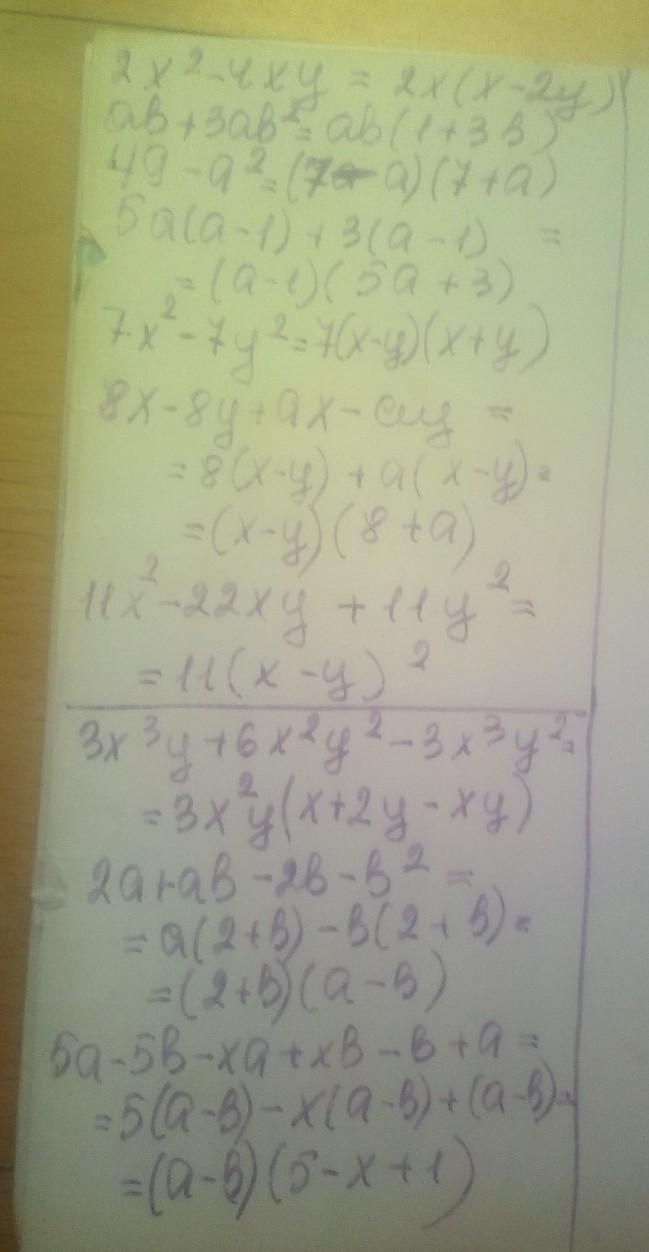 2x² - 4xy = 2x(x - 2y)
ab + 3ab² = ab(1 + 3b)
49 - a² = (7 - a)(7 + a)
5a(a - 1) + 3(a - 1) =
= (a - 1)(5a + 3)
7x² - 7y² = 7(x - y)(x + y)
8x - 8y + ax - ay =
= 8(x - y) + a(x - y) =
= (x - y)(8 + a)
11x² - 22xy + 11y² =
= 11(x - y)²
3x³y + 6x²y² - 3x³y² =
= 3x²y(x + 2y - xy)
2a + ab - 2b - b² =
= a(2 + b) - b(2 + b) =
= (2 + b)(a - b)
5a - 5b - xa + xb - b + a =
= 5(a - b) - x(a - b) + (a - b) =
= (a - b)(5 - x + 1)